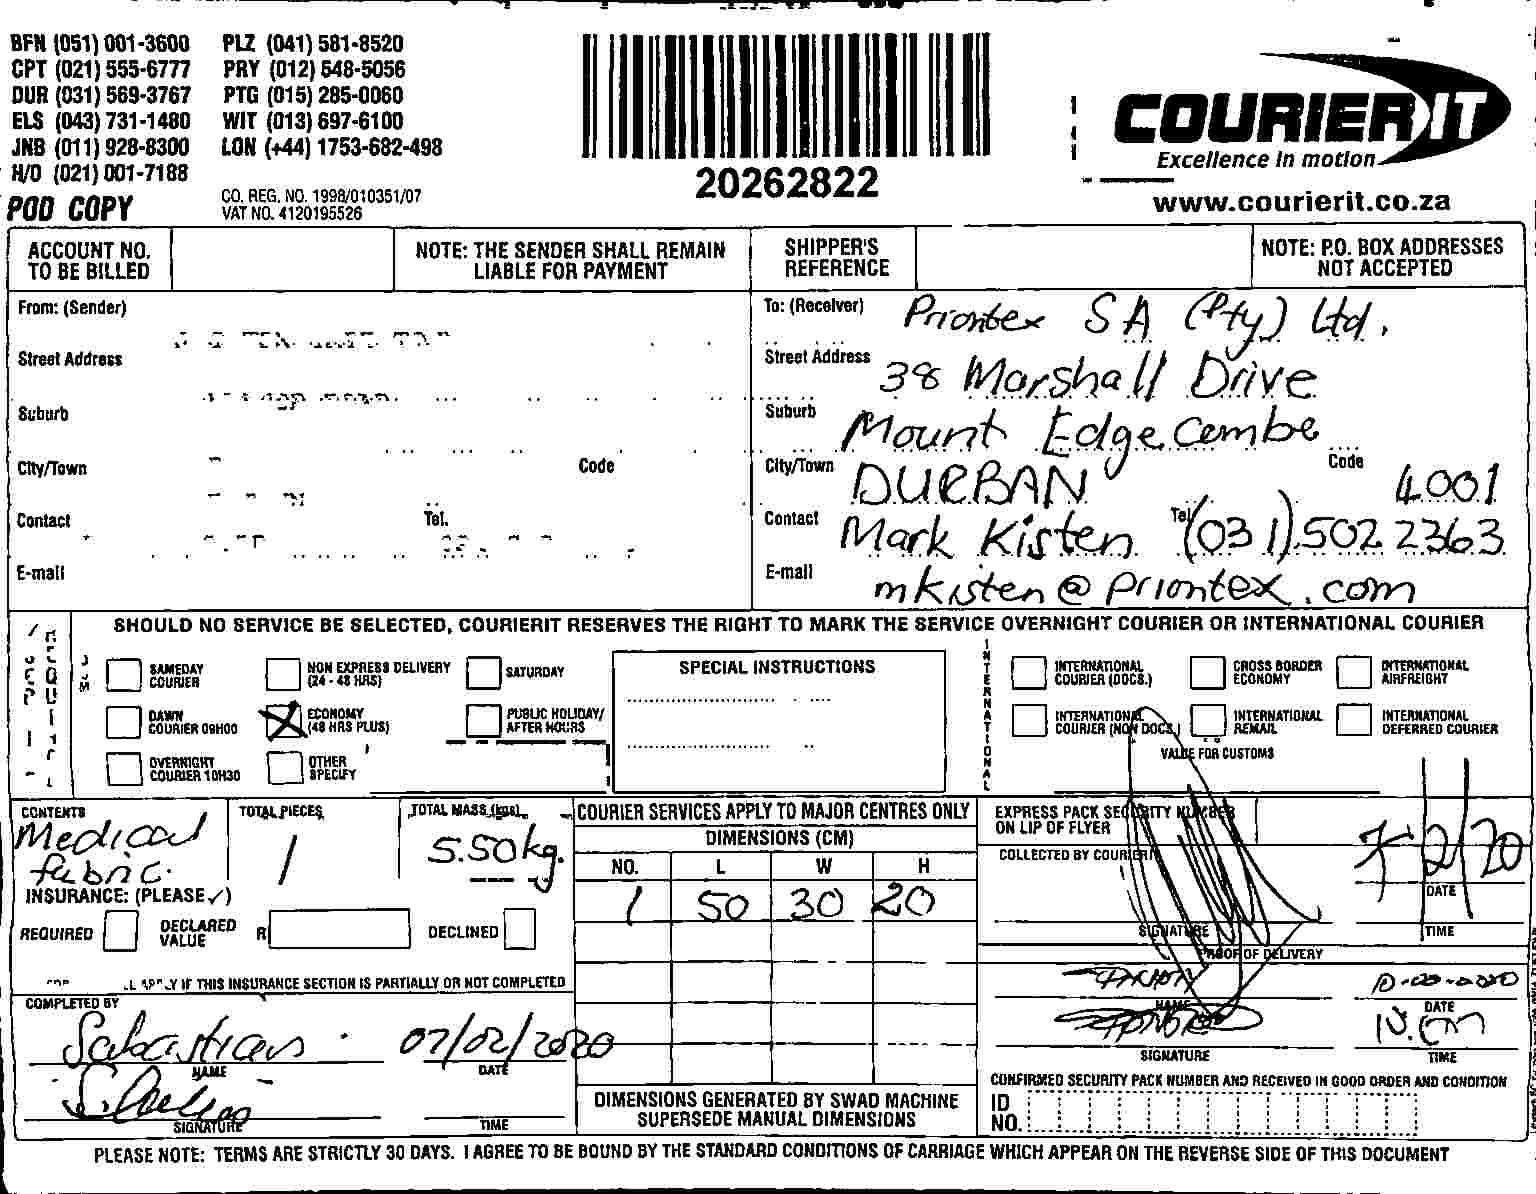 BFN (051) 001-3600 PLZ (041) 581-8520
CPT (021) 555-6777 PRY (012) 548-5056
DUR (031) 569-3767 PTG (015) 285-0060
ELS (043) 731-1480 WIT (013) 697-6100
JNB (011) 928-8300 LON (+44) 1753-682-498
H/O (021) 001-7188
POD COPY
CO. REG. NO. 1998/010351/07
VAT NO. 4120195526
20262822
COURIER IT
Excellence in motion
www.courierit.co.za
ACCOUNT NO.
TO BE BILLED
NOTE: THE SENDER SHALL REMAIN
LIABLE FOR PAYMENT
SHIPPER'S
REFERENCE
NOTE: P.O. BOX ADDRESSES
NOT ACCEPTED
From: (Sender)
Street Address
Suburb
City/Town Code
Contact Tel.
E-mail
To: (Receiver) Priontex SA (Pty) Ltd.
Street Address 38 Marshall Drive
Suburb Mount Edgecombe
City/Town DURBAN Code 4001
Contact Mark Kisten Tel (031) 502 2363
E-mail mkisten@priontex.com
SHOULD NO SERVICE BE SELECTED, COURIERIT RESERVES THE RIGHT TO MARK THE SERVICE OVERNIGHT COURIER OR INTERNATIONAL COURIER
SAMEDAY
COURIER
NON EXPRESS DELIVERY
(24 - 48 HRS)
SATURDAY
DAWN
COURIER 09H00
ECONOMY
(48 HRS PLUS)
PUBLIC HOLIDAY/
AFTER HOURS
OVERNIGHT
COURIER 10H30
OTHER
SPECIFY
SPECIAL INSTRUCTIONS
INTERNATIONAL
INTERNATIONAL
COURIER (DOCS.)
CROSS BORDER
ECONOMY
INTERNATIONAL
AIRFREIGHT
INTERNATIONAL
COURIER (NON DOCS.)
INTERNATIONAL
REMAIL
INTERNATIONAL
DEFERRED COURIER
VALUE FOR CUSTOMS
CONTENTS
Medical
fabric.
TOTAL PIECES
1
TOTAL MASS (kgs)
5.50kg.
INSURANCE: (PLEASE ✓)
REQUIRED DECLARED
VALUE R DECLINED
APPLY IF THIS INSURANCE SECTION IS PARTIALLY OR NOT COMPLETED
COMPLETED BY
07/02/2020
NAME DATE
SIGNATURE TIME
COURIER SERVICES APPLY TO MAJOR CENTRES ONLY
DIMENSIONS (CM)
NO. L W H
1 50 30 20
DIMENSIONS GENERATED BY SWAD MACHINE
SUPERSEDE MANUAL DIMENSIONS
EXPRESS PACK SECURITY NUMBER
ON LIP OF FLYER
COLLECTED BY COURIERIT
7/2/20
DATE
SIGNATURE TIME
PROOF OF DELIVERY
NAME DATE
SIGNATURE TIME
CONFIRMED SECURITY PACK NUMBER AND RECEIVED IN GOOD ORDER AND CONDITION
ID
NO.
PLEASE NOTE: TERMS ARE STRICTLY 30 DAYS. I AGREE TO BE BOUND BY THE STANDARD CONDITIONS OF CARRIAGE WHICH APPEAR ON THE REVERSE SIDE OF THIS DOCUMENT